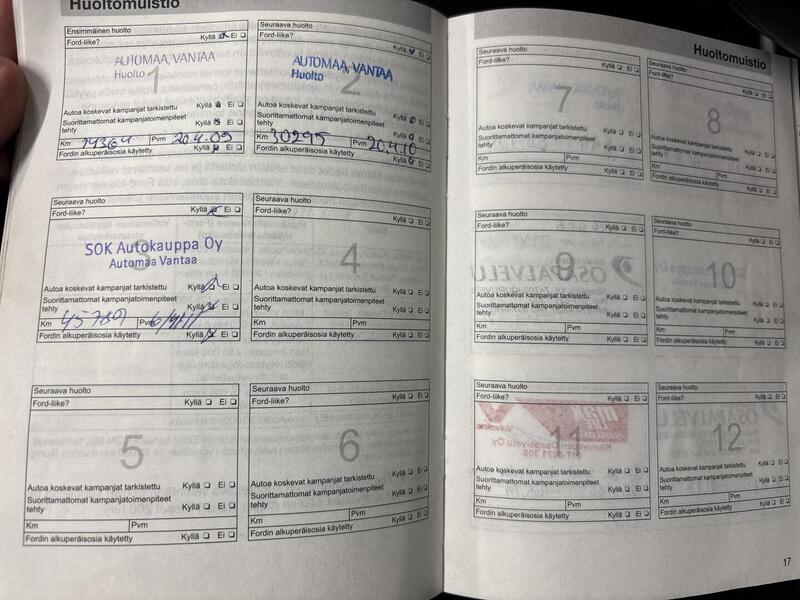 Huoltomuistio
Ensimmäinen huolto
Ford-liike? Kyllä Ei
AUTOMAA, VANTAA
Huolto
1
Autoa koskevat kampanjat tarkistettu Kyllä Ei
Suorittamattomat kampanjatoimenpiteet
tehty Kyllä Ei
Km 14364 Pvm 20.4.09
Fordin alkuperäisosia käytetty Kyllä Ei
Seuraava huolto
Ford-liike? Kyllä Ei
AUTOMAA, VANTAA
Huolto
2
Autoa koskevat kampanjat tarkistettu Kyllä Ei
Suorittamattomat kampanjatoimenpiteet
tehty Kyllä Ei
Km 30295 Pvm 20.4.10
Fordin alkuperäisosia käytetty Kyllä Ei
Seuraava huolto
Ford-liike? Kyllä Ei
SOK Autokauppa Oy
Automaa Vantaa
3
Autoa koskevat kampanjat tarkistettu Kyllä Ei
Suorittamattomat kampanjatoimenpiteet
tehty Kyllä Ei
Km 45789 Pvm
Fordin alkuperäisosia käytetty Kyllä Ei
Seuraava huolto
Ford-liike? Kyllä Ei
4
Autoa koskevat kampanjat tarkistettu Kyllä Ei
Suorittamattomat kampanjatoimenpiteet
tehty Kyllä Ei
Km Pvm
Fordin alkuperäisosia käytetty Kyllä Ei
Seuraava huolto
Ford-liike? Kyllä Ei
5
Autoa koskevat kampanjat tarkistettu Kyllä Ei
Suorittamattomat kampanjatoimenpiteet
tehty Kyllä Ei
Km Pvm
Fordin alkuperäisosia käytetty Kyllä Ei
Seuraava huolto
Ford-liike? Kyllä Ei
6
Autoa koskevat kampanjat tarkistettu Kyllä Ei
Suorittamattomat kampanjatoimenpiteet
tehty Kyllä Ei
Km Pvm
Fordin alkuperäisosia käytetty Kyllä Ei
Huoltomuistio
Seuraava huolto
Ford-liike? Kyllä Ei
7
Autoa koskevat kampanjat tarkistettu Kyllä Ei
Suorittamattomat kampanjatoimenpiteet
tehty Kyllä Ei
Km Pvm
Fordin alkuperäisosia käytetty Kyllä Ei
Seuraava huolto
Ford-liike? Kyllä Ei
8
Autoa koskevat kampanjat tarkistettu Kyllä Ei
Suorittamattomat kampanjatoimenpiteet
tehty Kyllä Ei
Km Pvm
Fordin alkuperäisosia käytetty Kyllä Ei
Seuraava huolto
Ford-liike? Kyllä Ei
9
Autoa koskevat kampanjat tarkistettu Kyllä Ei
Suorittamattomat kampanjatoimenpiteet
tehty Kyllä Ei
Km Pvm
Fordin alkuperäisosia käytetty Kyllä Ei
Seuraava huolto
Ford-liike? Kyllä Ei
10
Autoa koskevat kampanjat tarkistettu Kyllä Ei
Suorittamattomat kampanjatoimenpiteet
tehty Kyllä Ei
Km Pvm
Fordin alkuperäisosia käytetty Kyllä Ei
Seuraava huolto
Ford-liike? Kyllä Ei
11
Autoa koskevat kampanjat tarkistettu Kyllä Ei
Suorittamattomat kampanjatoimenpiteet
tehty Kyllä Ei
Km Pvm
Fordin alkuperäisosia käytetty Kyllä Ei
Seuraava huolto
Ford-liike? Kyllä Ei
12
Autoa koskevat kampanjat tarkistettu Kyllä Ei
Suorittamattomat kampanjatoimenpiteet
tehty Kyllä Ei
Km Pvm
Fordin alkuperäisosia käytetty Kyllä Ei
17